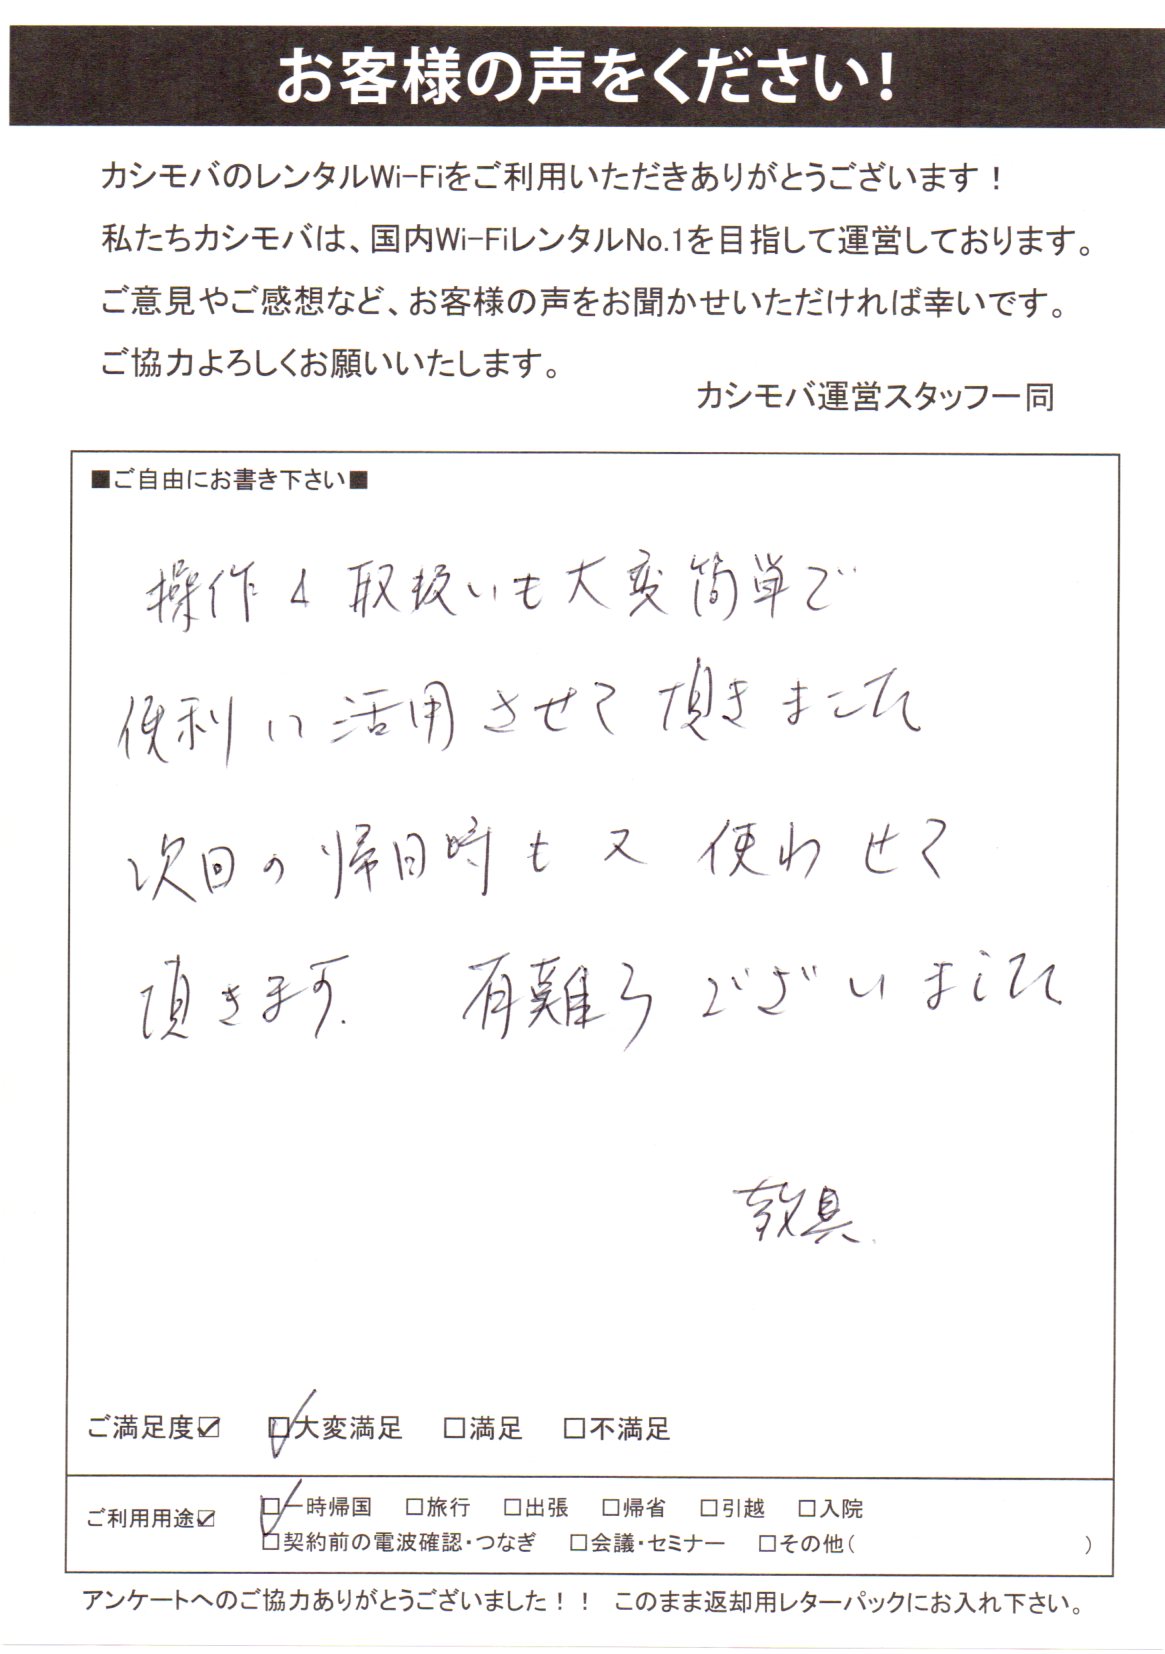 お客様の声をください!
カシモバのレンタルWi-Fiをご利用いただきありがとうございます！
私たちカシモバは、国内Wi-FiレンタルNo.1を目指して運営しております。
ご意見やご感想など、お客様の声をお聞かせいただければ幸いです。
ご協力よろしくお願いいたします。
カシモバ運営スタッフ一同
■ご自由にお書き下さい■
操作&取扱いも大変簡単で
便利に活用させて頂きました
次回の帰日時も又使わせて
頂きます. 有難うございました
敬具.
ご満足度☑ ☑大変満足 □満足 □不満足
ご利用用途☑ ☑一時帰国 □旅行 □出張 □帰省 □引越 □入院
□契約前の電波確認・つなぎ □会議・セミナー □その他( )
アンケートへのご協力ありがとうございました！！ このまま返却用レターパックにお入れ下さい。